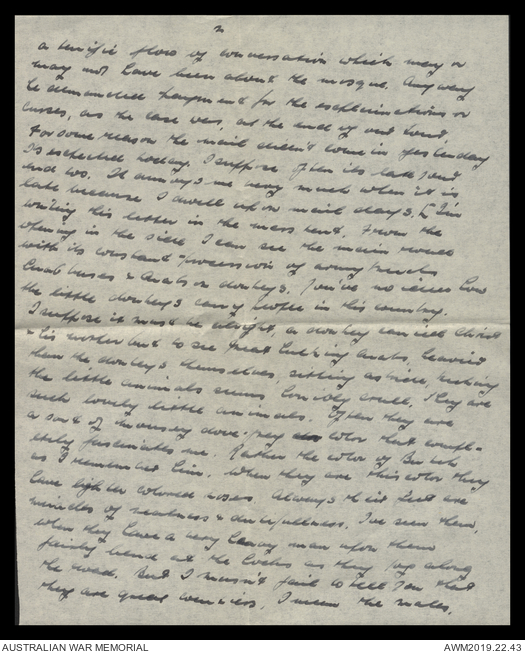 a terrific flow of conversation which may or
may not have been about the mosque. Anyway
he demanded payment for the explanations or
curses, as the case was, at the end of our tour.
For some reason the mail didn't come in yesterday
Is expected today. I suppose often its late, and
It annoys me very much when it is
late because I dwell upon mail days. [I'm
writing this letter in the mess tent. From the
opening in the side I can see the main road
with its constant procession of army trucks
Arab buses & Arabs on donkeys. You've no idea how
the little donkeys carry people in this country.
I suppose it must be alright, a donkey carried Christ
& his mother but to see great hulking Arabs, heavier
than the donkeys themselves, sitting astride, kicking
the little animals seems horribly cruel. They are
such lovely little animals. Often they are
a sort of mousey dove-grey color that
fascinates me. Rather the color of Butch
as I remember him. When they are this color they
have lighter colored noses. Always their feet are
miracles of neatness & I've seen them,
when they have a very heavy man upon them
fairly bend at the hocks as they jog along
the road. But I mustn't fail to tell you that
they are great I mean the males,
AUSTRALIAN WAR MEMORIAL
AWM2019.22.43